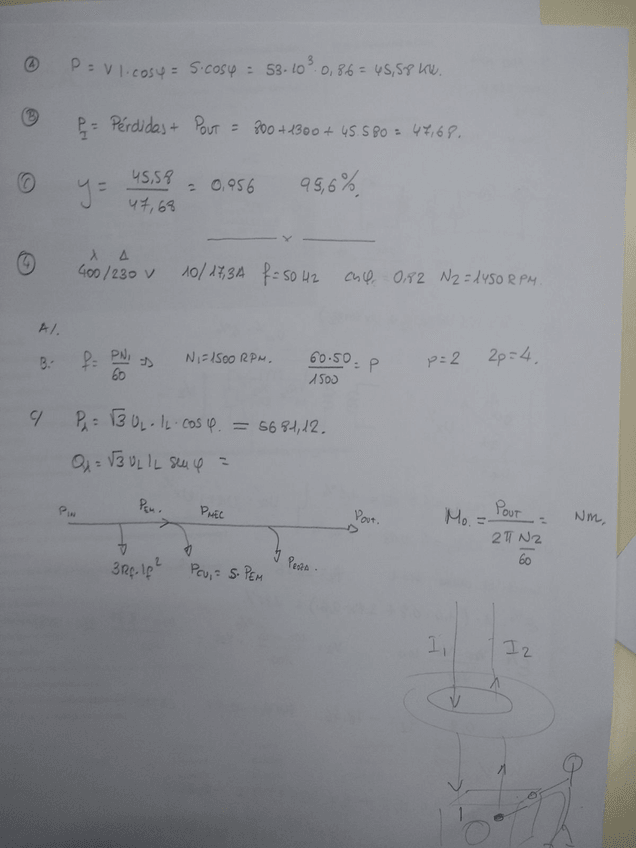 A P = V I · cos φ = S · cos φ = 53 · 10³ · 0,86 = 45,58 kW.
B P_I = Pérdidas + P_OUT = 800 + 1300 + 45.580 = 47,68.
C y = 45,58 / 47,68 = 0,956 95,6%
4 400/230 V 10/17,3A f=50 Hz cos φ. 0,82 N2 = 1450 RPM
λ Δ
A/.
B.- f = PN₁/60 ⇒ N₁=1500 RPM. 60·50/1500 = P p=2 2p=4.
C/ P₁ = √3 U_L · I_L · cos φ. = 5681,12.
Q₁ = √3 U_L I_L sen φ =
P_IN P_EM. P_MEC P_OUT. M₀. = P_OUT / 2π N2/60 = Nm.
3R_f·I_f² P_CU₁ = S· P_EM
I₁ I₂